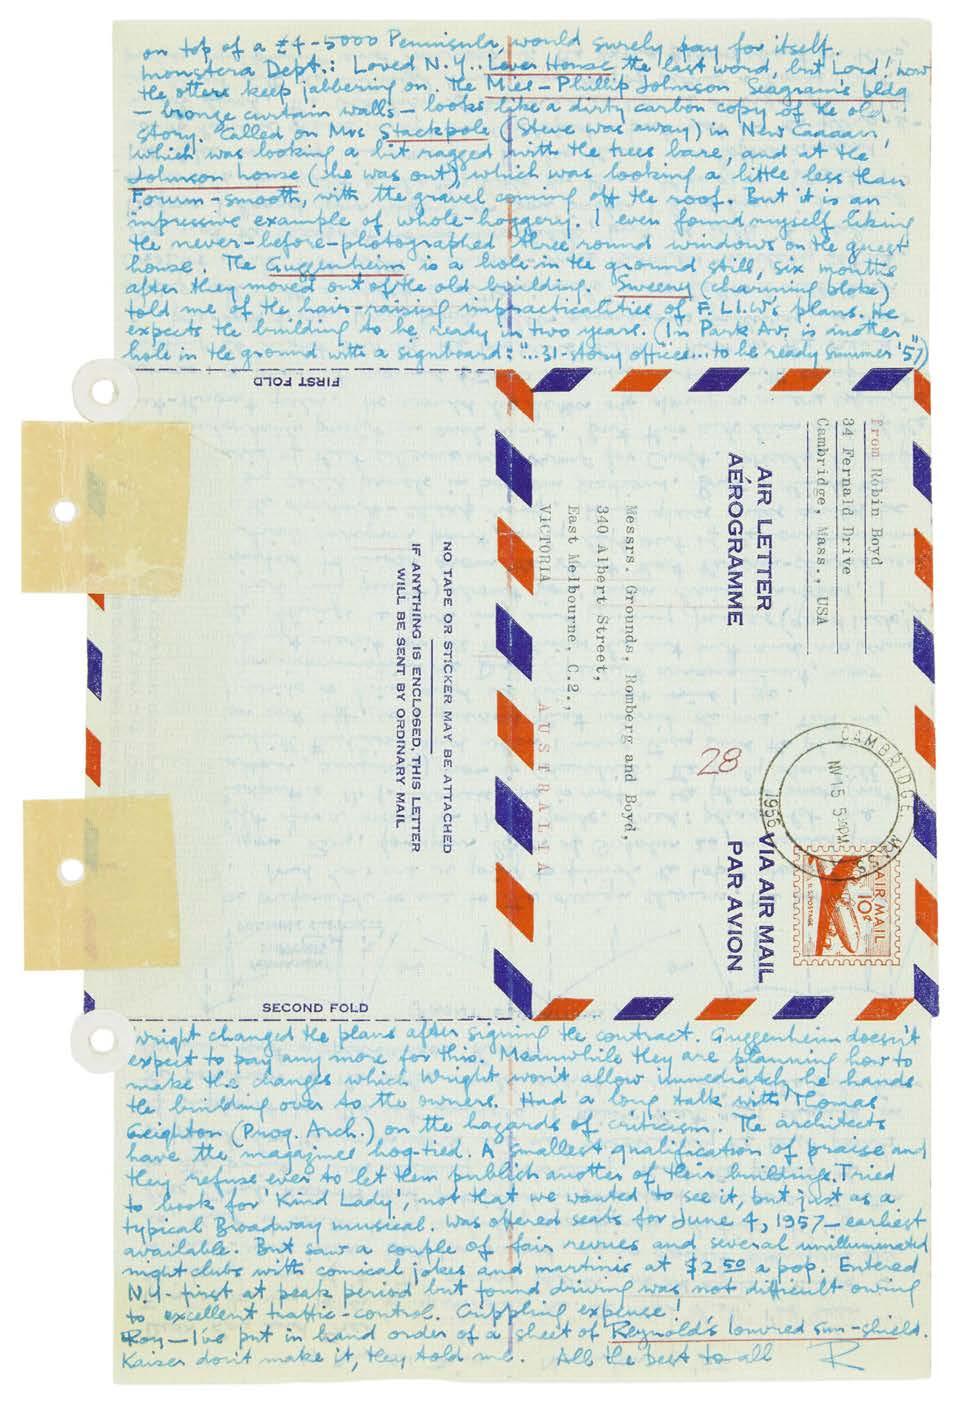 on top of a £4-5000 Peninsula, would surely pay for itself.
Monstera Dept.: Loved N.Y.. Lever House the last word, but Lord! how
the others keep jabbering on. The Mies-Phillip Johnson Seagram's bldg
- bronze curtain walls - looks like a dirty carbon copy of the old
story. Called on Mrs Stackpole (Steve was away) in New Canaan,
which was looking a bit ragged with the trees bare, and at the
Johnson house (he was out), which was looking a little less than
Forum-smooth, with the gravel coming off the roof. But it is an
impressive example of whole-hoggery. I even found myself liking
the never-before-photographed three round windows on the guest
house. The Guggenheim is a hole in the ground still, six months
after they moved out of the old building. Sweeney (charming bloke)
told me of the hair-raising impracticalities of F.Ll.W's plans. He
expects the building to be ready in two years. (In Park Av. is another
hole in the ground with a signboard: "...31-story offices... to be ready summer '57")
FIRST FOLD
From Robin Boyd
34 Fernald Drive
Cambridge, Mass., USA
AIR LETTER
AÉROGRAMME
VIA AIR MAIL
PAR AVION
CAMBRIDGE,
NV 15 5-PM
1956
AIR MAIL
10¢
U.S. POSTAGE
28
Messrs. Grounds, Romberg and Boyd,
340 Albert Street,
East Melbourne, C.2.,
VICTORIA
AUSTRALIA
NO TAPE OR STICKER MAY BE ATTACHED
IF ANYTHING IS ENCLOSED, THIS LETTER
WILL BE SENT BY ORDINARY MAIL
SECOND FOLD
Wright changed the plans after signing the contract. Guggenheim doesn't
expect to pay any more for this. Meanwhile they are planning how to
make the changes which Wright won't allow immediately he hands
the building over to the owners. Had a long talk with Thomas
Creighton (Prog. Arch.) on the hazards of criticism. The architects
have the magazines hog-tied. A smallest qualification of praise and
they refuse ever to let them publish another of their buildings. Tried
to book for 'Kind Lady', not that we wanted to see it, but just as a
typical Broadway musical. Was offered seats for June 4, 1957 - earliest
available. But saw a couple of fair revues and several unilluminated
night clubs with comical jokes and martinis at $2.50 a pop. Entered
N.Y. first at peak period but found driving was not difficult owing
to excellent traffic-control. Crippling expense!
Roy - I've put in hand order of a sheet of Reynold's louvred sun-shield.
Kaiser don't make it, they told me. All the best to all R